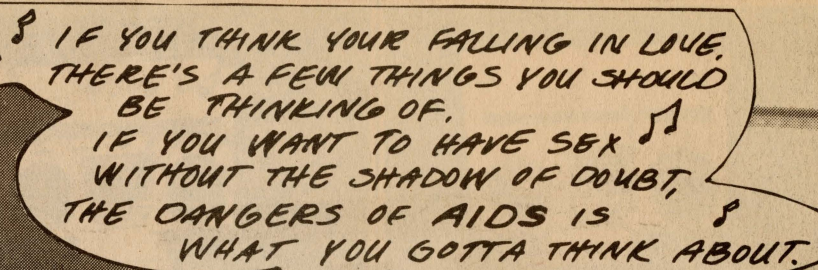 IF YOU THINK YOUR FALLING IN LOVE,
THERE'S A FEW THINGS YOU SHOULD
BE THINKING OF.
IF YOU WANT TO HAVE SEX
WITHOUT THE SHADOW OF DOUBT,
THE DANGERS OF AIDS IS
WHAT YOU GOTTA THINK ABOUT.